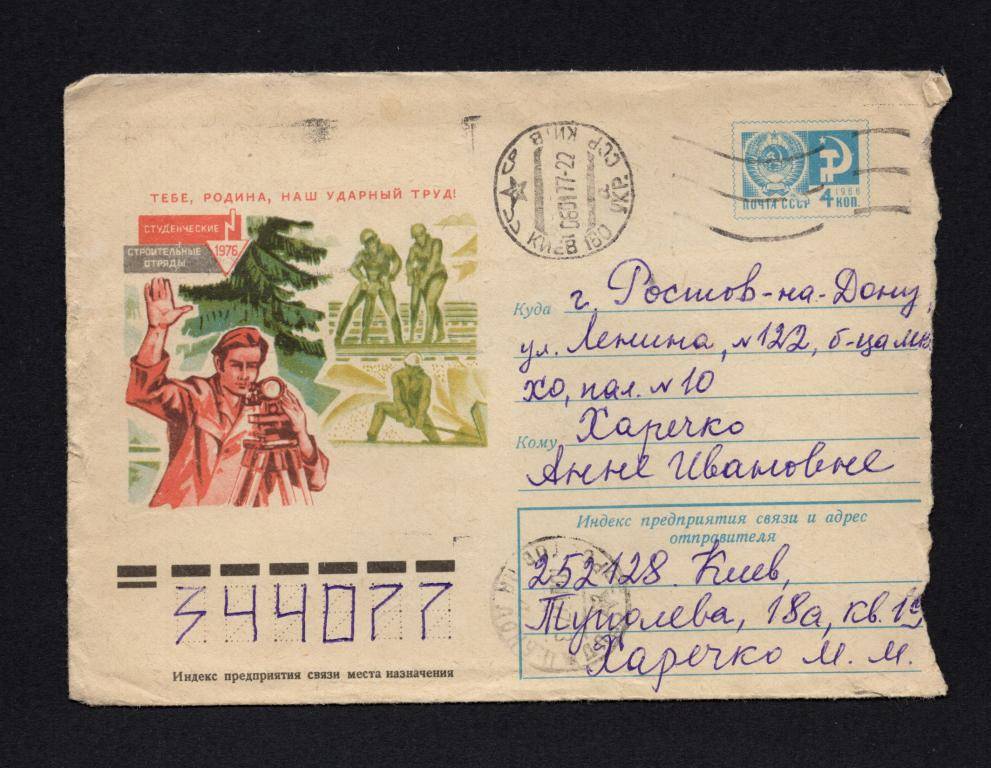 ТЕБЕ, РОДИНА, НАШ УДАРНЫЙ ТРУД!
СТУДЕНЧЕСКИЕ
СТРОИТЕЛЬНЫЕ
ОТРЯДЫ
1976
КИЇВ УКР. ССР
060177-22
КИЕВ 160
1966
ПОЧТА СССР 4 КОП.
Куда г. Ростов-на-Дону,
ул. Ленина, №122, б-ца
хо, пал. №10
Кому Харечко
Анне Ивановне
Индекс предприятия связи и адрес
отправителя
252128. Киев,
Туполева, 18а, кв.
Харечко М. М.
344077
Индекс предприятия связи места назначения